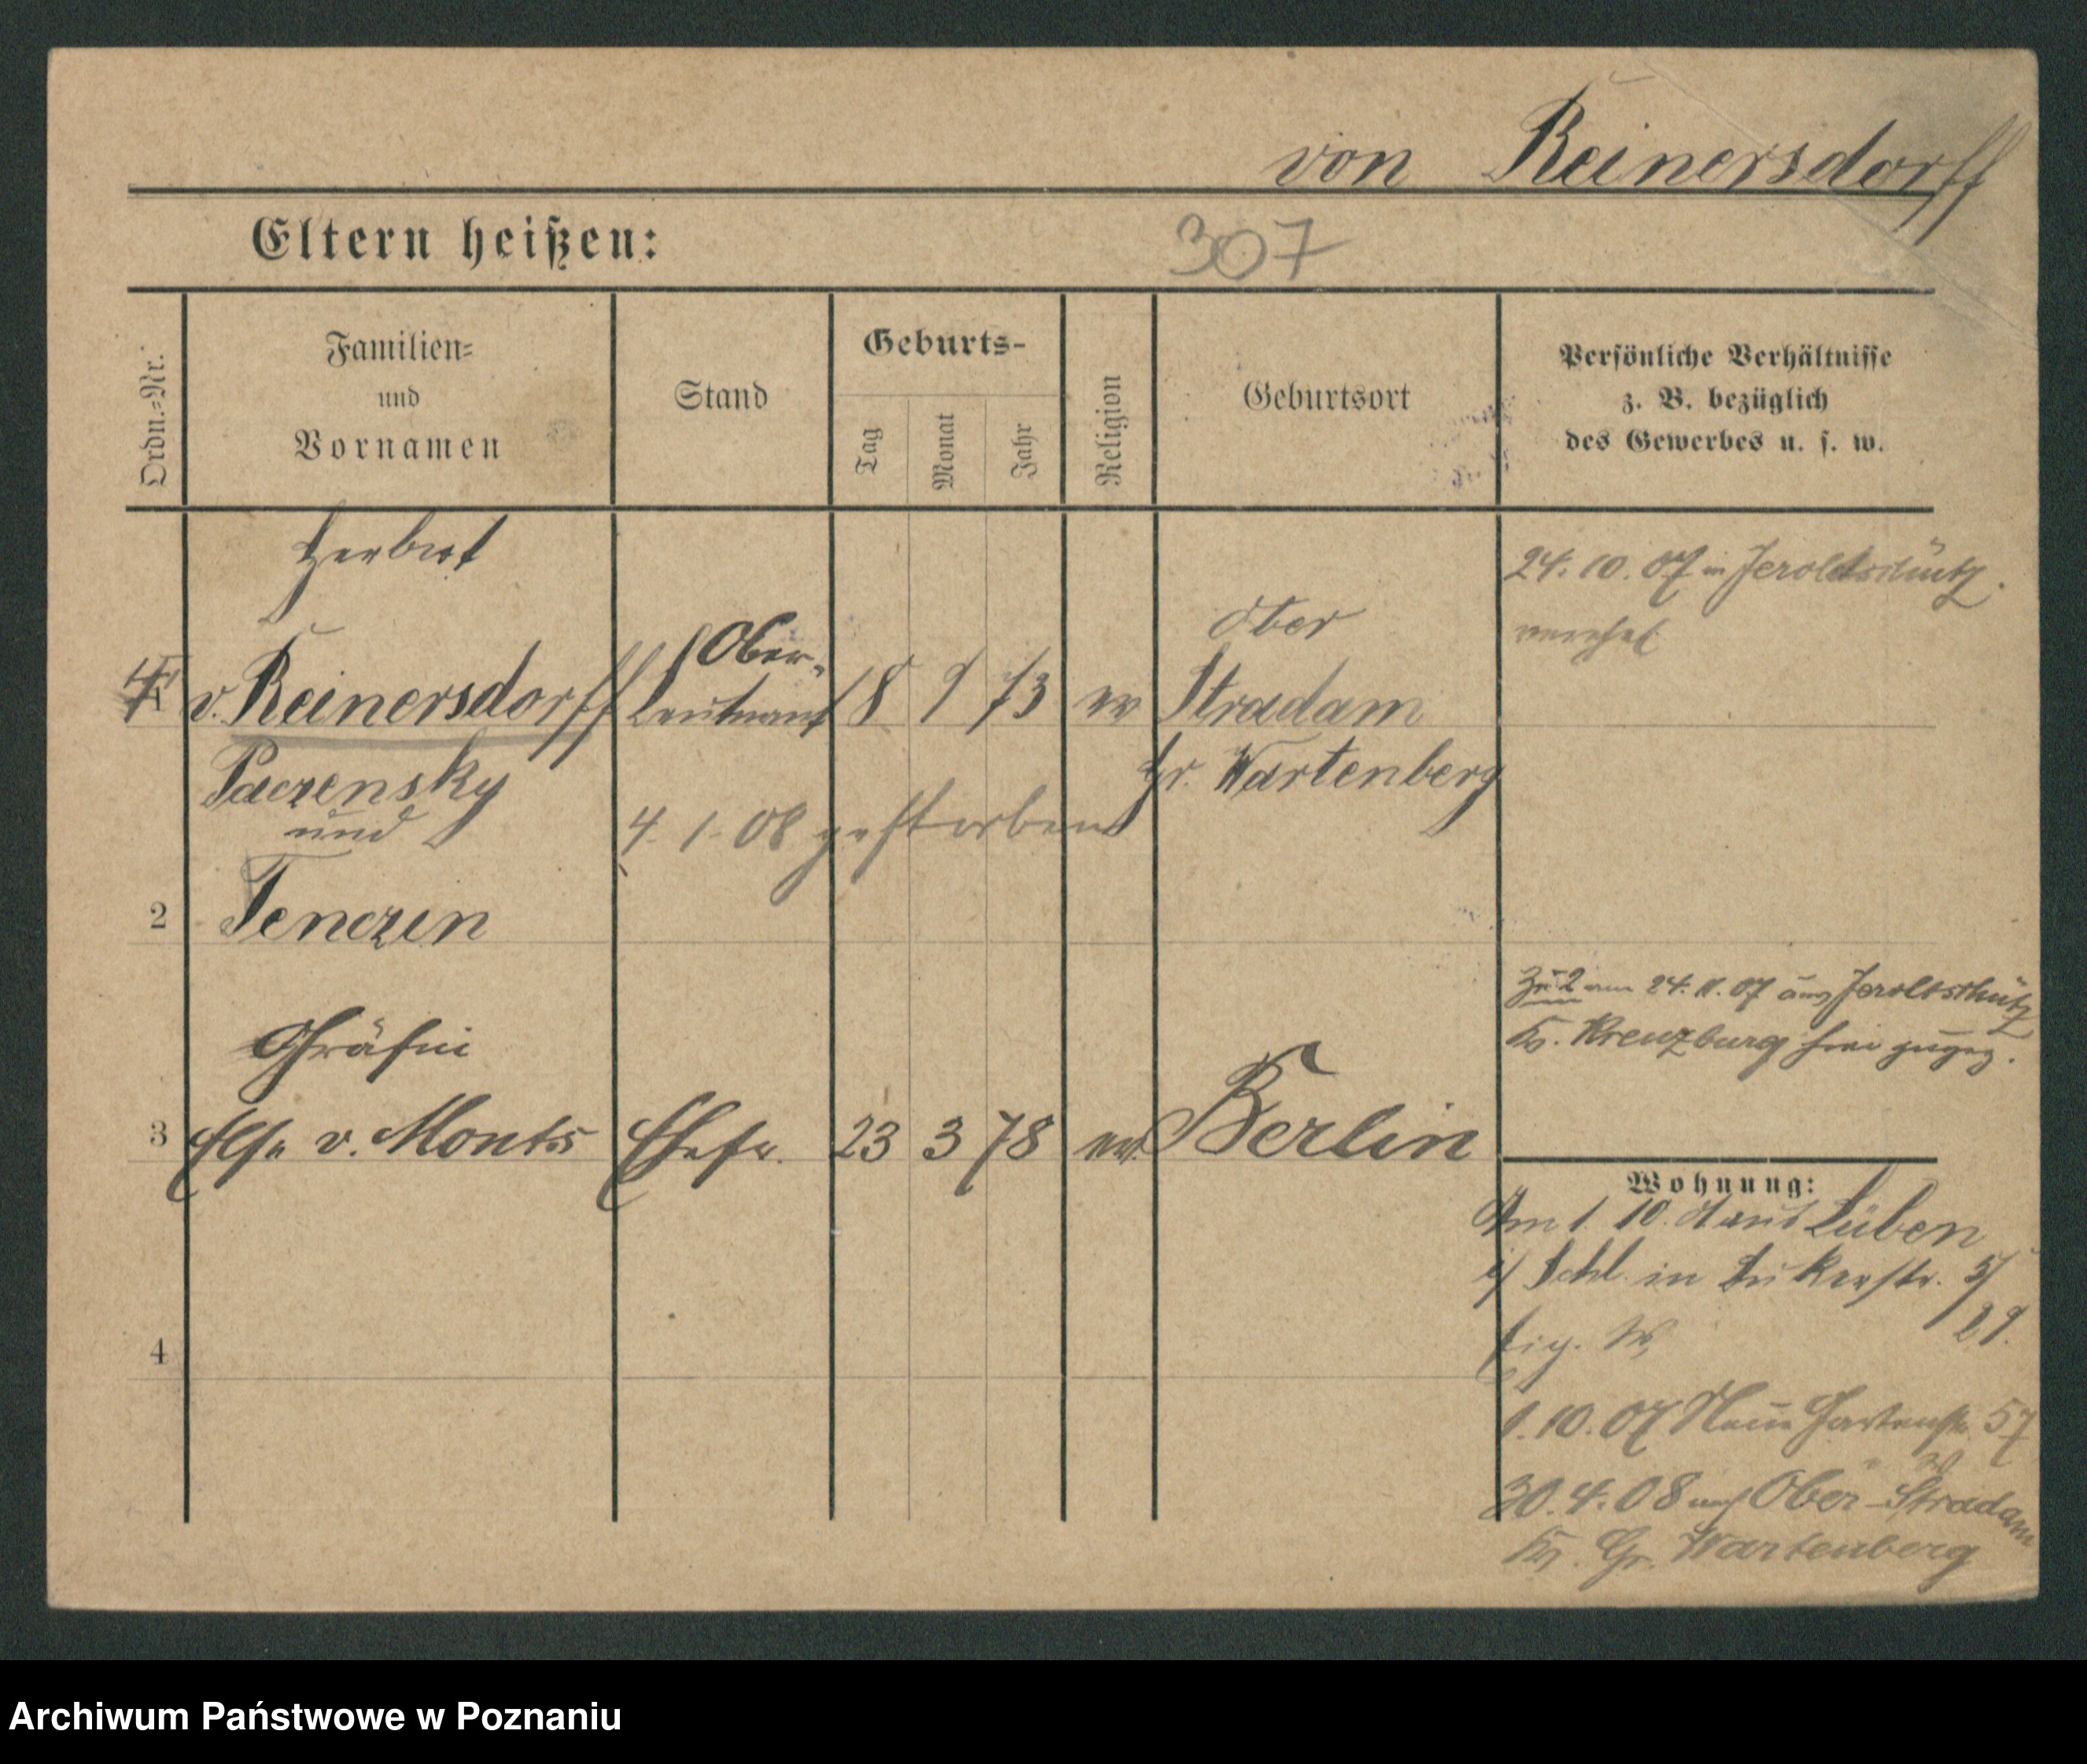 von Reinersdorff
Eltern heißen:
307
Ordn.-Nr.
Familien-
und
Vornamen
Stand
Geburts-
Tag
Monat
Jahr
Religion
Geburtsort
Persönliche Verhältnisse
z. B. bezüglich
des Gewerbes u. s. w.
Herbert
24. 10. 07 in Jeroltschütz
verehel.
1 v. Reinersdorff Ober-Leutnant 18 9 73 ev Ober Stradam
Paczensky
Gr. Wartenberg
und
4. 1. 08 gestorben
2 Tenczin
zu 2 am 24. 11. 07 aus Jeroltschütz
Kr. Kreuzburg zugez.
Gräfin
3 Else v. Monts Ehefr. 23 3 78 ev. Berlin
4
Wohnung:
Am 1. 10. aus Lüben
i/ Schl. in
29.
Eig. W.
1. 10. 07 Neue Gartenstr. 57
30. 4. 08 nach Ober-Stradam
Kr. Gr. Wartenberg
Archiwum Państwowe w Poznaniu